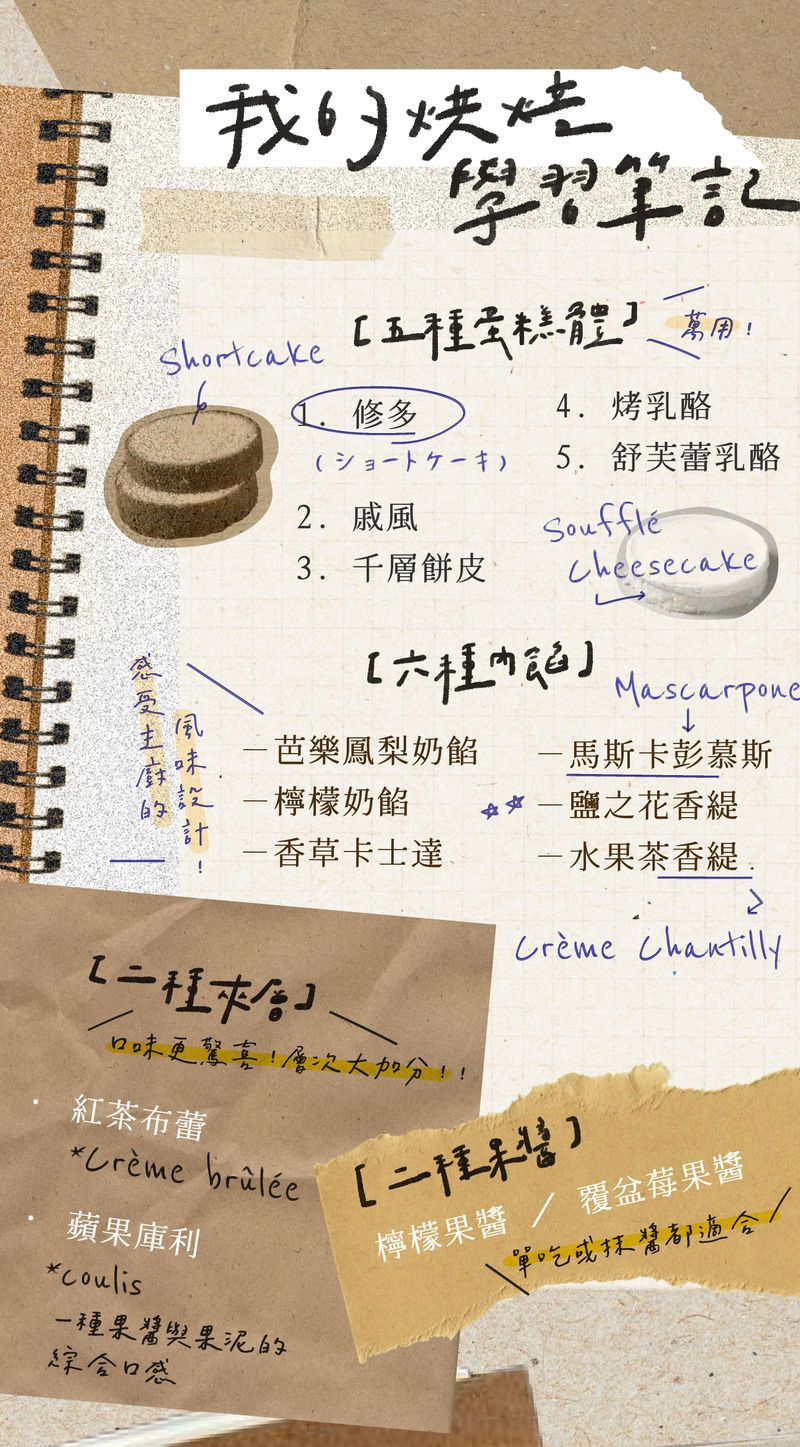 我的烘焙
學習筆記
[五種蛋糕體]
萬用!
Shortcake
1. 修多
(ショートケーキ)
2. 戚風
3. 千層餅皮
4. 烤乳酪
5. 舒芙蕾乳酪
Soufflé
Cheesecake
[六種內餡]
感受主廚的
風味設計!
—芭樂鳳梨奶餡
—檸檬奶餡
—香草卡士達
Mascarpone
—馬斯卡彭慕斯
—鹽之花香緹
—水果茶香緹
Crème Chantilly
[二種夾層]
口味更驚喜!層次大加分!!
· 紅茶布蕾
*Crème brûlée
· 蘋果庫利
*coulis
一種果醬與果泥的
綜合口感
[二種果醬]
檸檬果醬 / 覆盆莓果醬
單吃或抹醬都適合